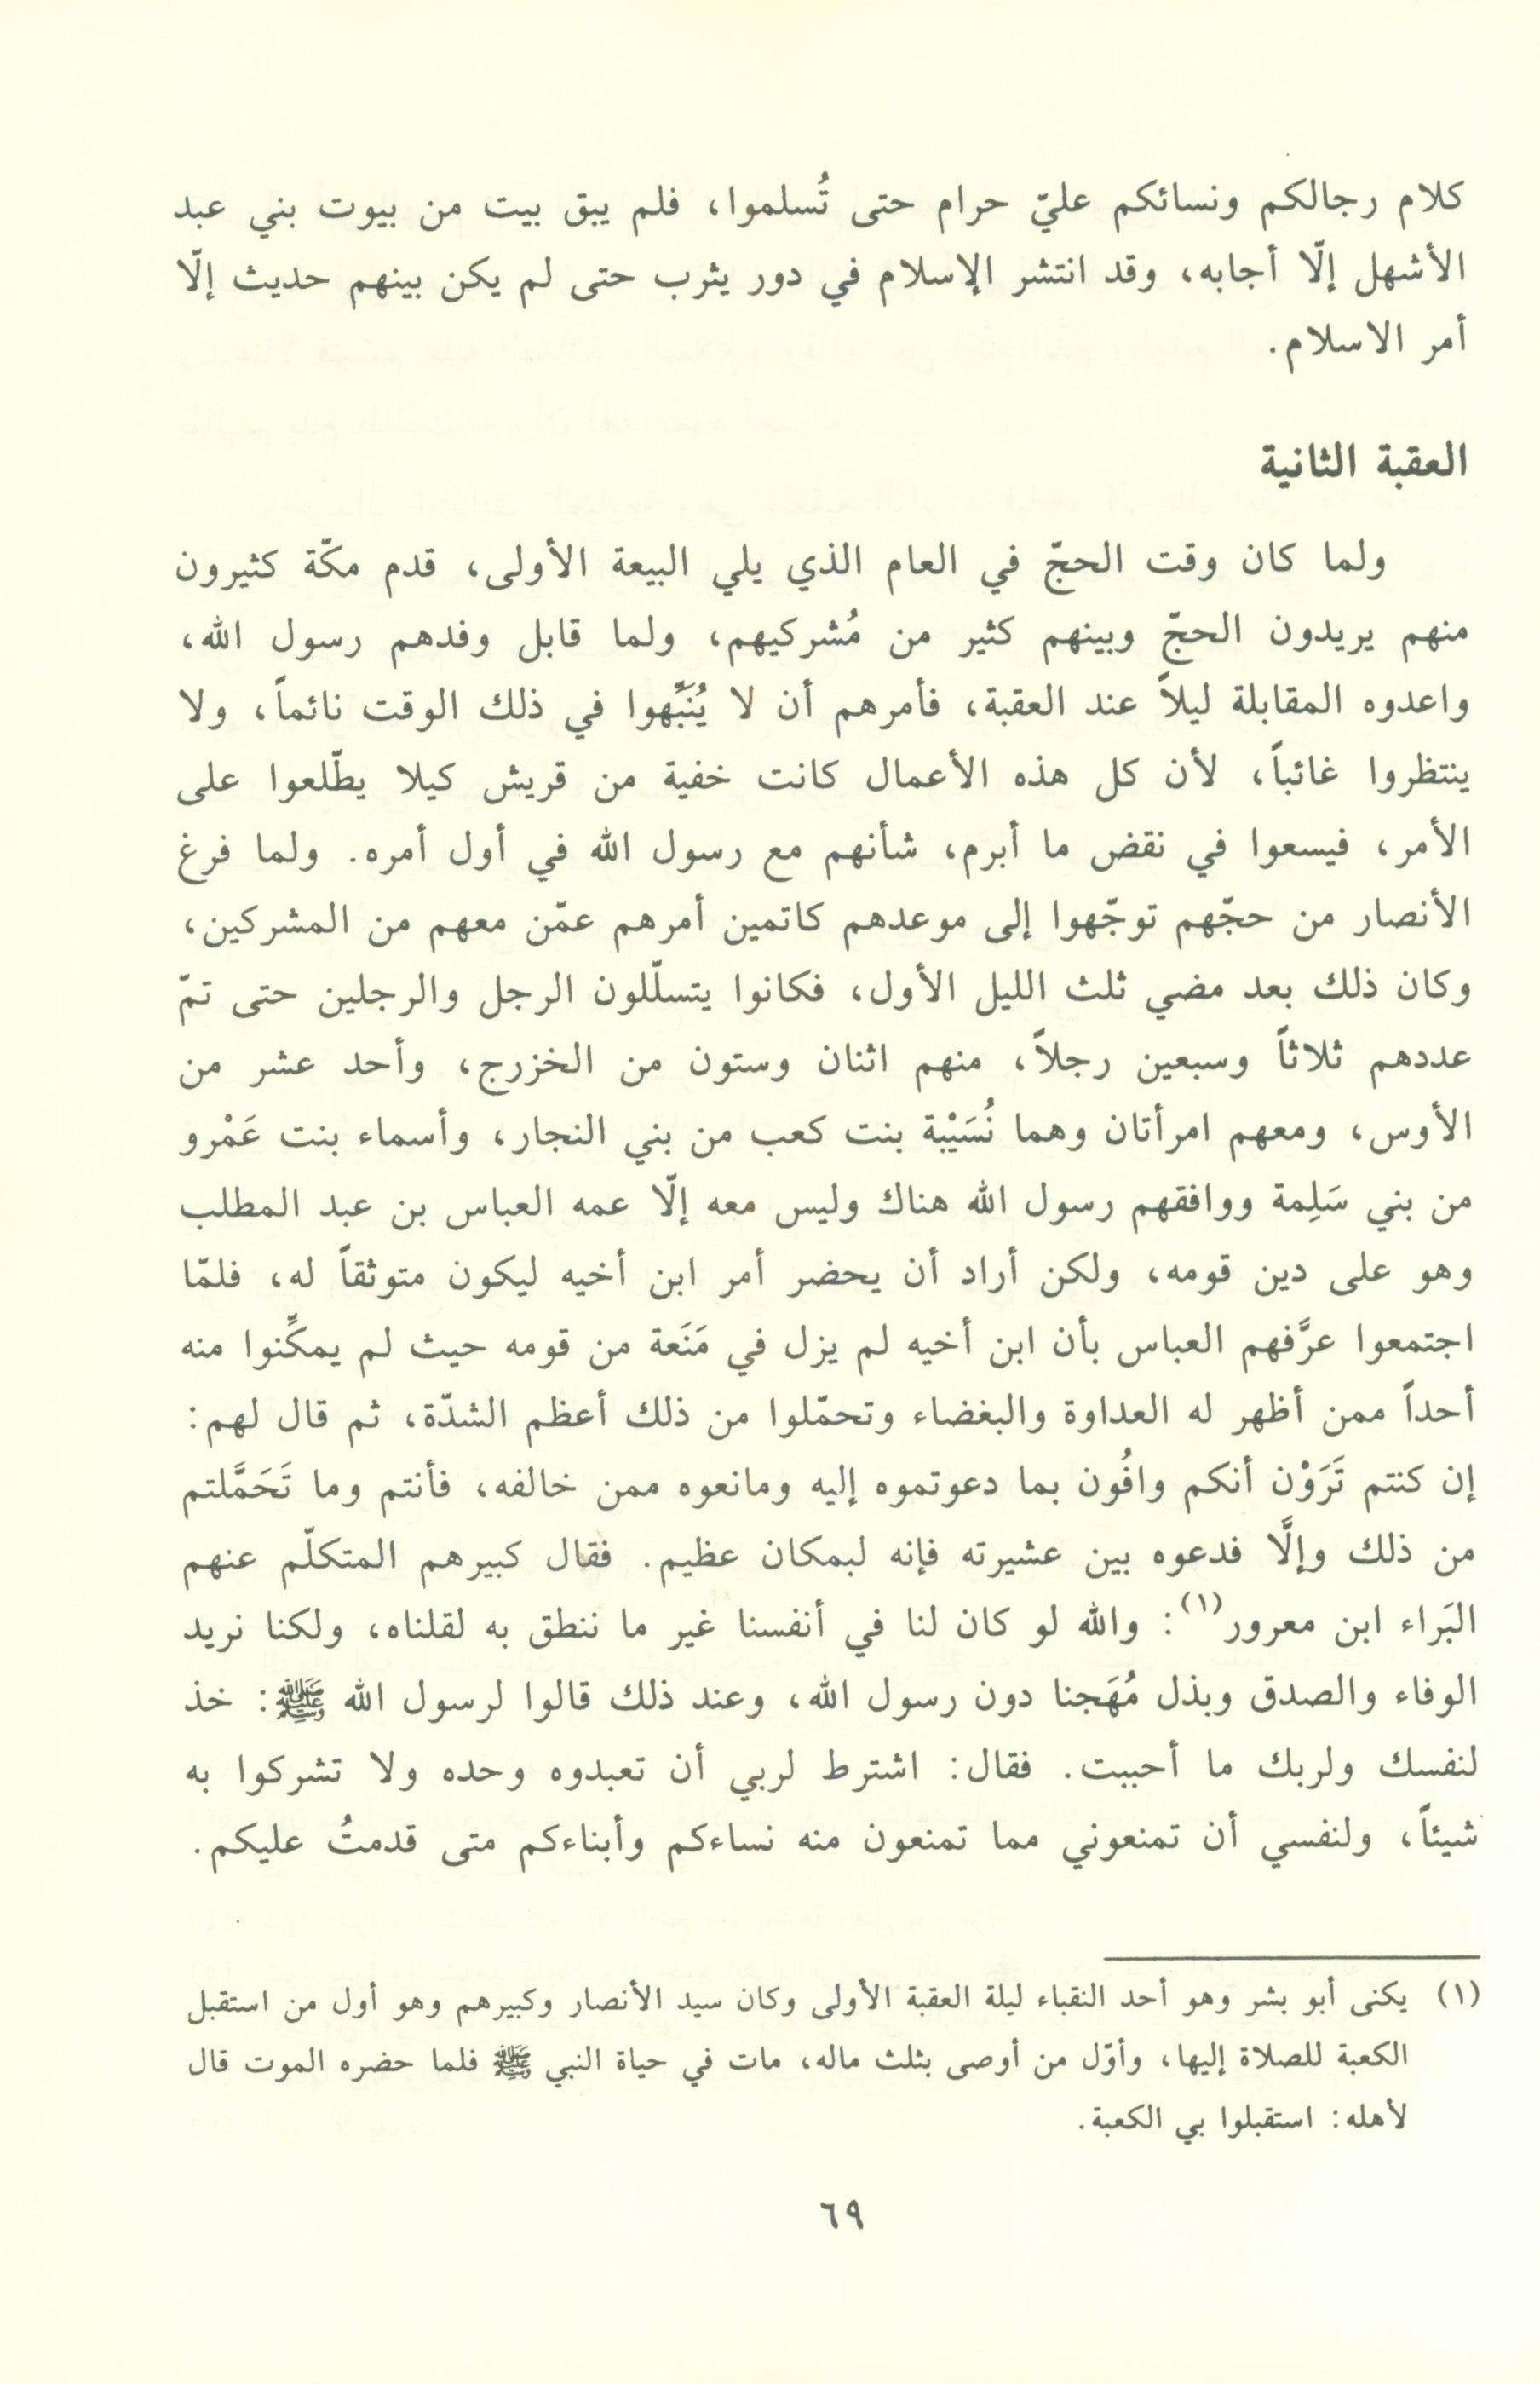 كلام رجالكم ونسائكم عليّ حرام حتى تُسلموا، فلم يبق بيت من بيوت بني عبد
الأشهل إلّا أجابه، وقد انتشر الإسلام في دور يثرب حتى لم يكن بينهم حديث إلّا
أمر الاسلام.
العقبة الثانية
ولما كان وقت الحجّ في العام الذي يلي البيعة الأولى، قدم مكّة كثيرون
منهم يريدون الحجّ وبينهم كثير من مُشركيهم، ولما قابل وفدهم رسول الله،
واعدوه المقابلة ليلاً عند العقبة، فأمرهم أن لا يُنَبِّهوا في ذلك الوقت نائماً، ولا
ينتظروا غائباً، لأن كل هذه الأعمال كانت خفية من قريش كيلا يطّلعوا على
الأمر، فيسعوا في نقض ما أبرم، شأنهم مع رسول الله في أول أمره. ولما فرغ
الأنصار من حجّهم توجّهوا إلى موعدهم كاتمين أمرهم عمّن معهم من المشركين،
وكان ذلك بعد مضي ثلث الليل الأول، فكانوا يتسلّلون الرجل والرجلين حتى تمّ
عددهم ثلاثاً وسبعين رجلاً، منهم اثنان وستون من الخزرج، وأحد عشر من
الأوس، ومعهم امرأتان وهما نُسَيْبة بنت كعب من بني النجار، وأسماء بنت عَمْرو
من بني سَلِمة ووافقهم رسول الله هناك وليس معه إلّا عمه العباس بن عبد المطلب
وهو على دين قومه، ولكن أراد أن يحضر أمر ابن أخيه ليكون متوثقاً له، فلمّا
اجتمعوا عرَّفهم العباس بأن ابن أخيه لم يزل في مَنَعة من قومه حيث لم يمكِّنوا منه
أحداً ممن أظهر له العداوة والبغضاء وتحمّلوا من ذلك أعظم الشدّة، ثم قال لهم:
إن كنتم تَرَوْن أنكم وافُون بما دعوتموه إليه ومانعوه ممن خالفه، فأنتم وما تَحَمَّلتم
من ذلك وإلَّا فدعوه بين عشيرته فإنه لبمكان عظيم. فقال كبيرهم المتكلّم عنهم
البَراء ابن معرور(١): والله لو كان لنا في أنفسنا غير ما ننطق به لقلناه، ولكنا نريد
الوفاء والصدق وبذل مُهَجنا دون رسول الله، وعند ذلك قالوا لرسول الله ﷺ: خذ
لنفسك ولربك ما أحببت. فقال: اشترط لربي أن تعبدوه وحده ولا تشركوا به
شيئاً، ولنفسي أن تمنعوني مما تمنعون منه نساءكم وأبناءكم متى قدمتُ عليكم.
(١) يكنى أبو بشر وهو أحد النقباء ليلة العقبة الأولى وكان سيد الأنصار وكبيرهم وهو أول من استقبل
الكعبة للصلاة إليها، وأوّل من أوصى بثلث ماله، مات في حياة النبي ﷺ فلما حضره الموت قال
لأهله: استقبلوا بي الكعبة.
٦٩